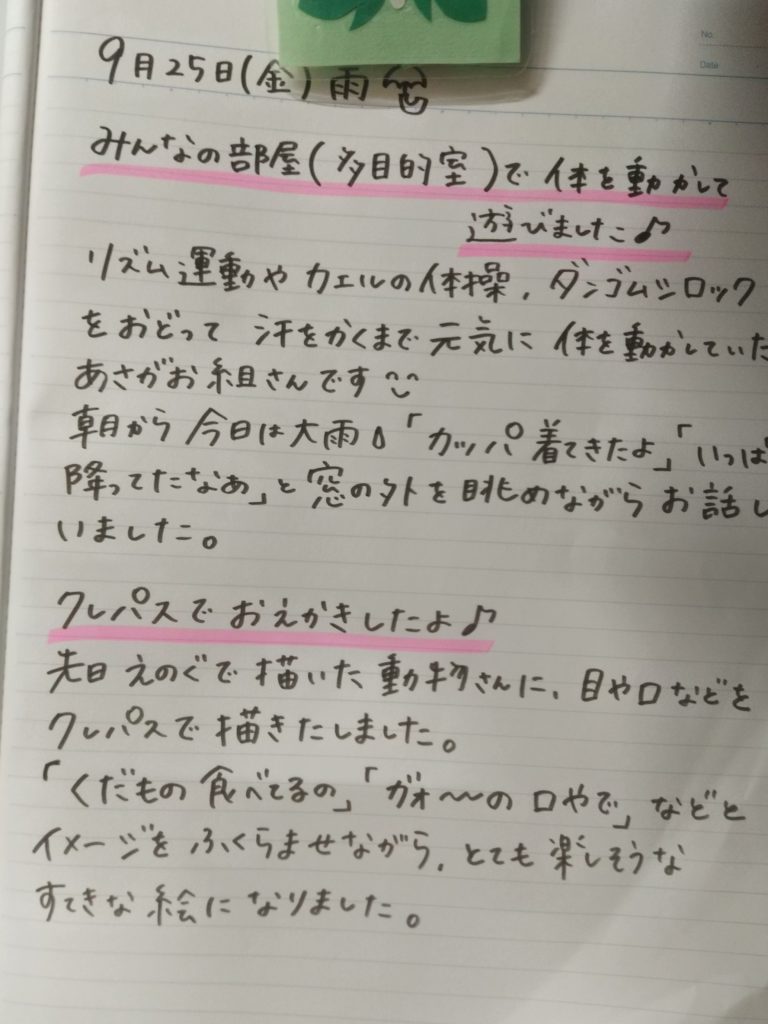 No.
Date
9月25日(金) 雨
みんなの部屋(多目的室)で 体を動かして
遊びました♪
リズム運動や カエルの体操、ダンゴムシロック
をおどって 汗をかくまで 元気に 体を動かしていた
あさがお組さんです
朝から 今日は大雨「カッパ着てきたよ」「いっぱ
降ってたなあ」と窓の外を眺めながらお話し
いました。
クレパスで おえかきしたよ♪
先日 えのぐで 描いた 動物さんに、目や口などを
クレパスで描きたしました。
「くだもの食べてるの」「ガオ〜〜の口やで」などと
イメージを ふくらませながら、とても楽しそうな
すてきな絵になりました。